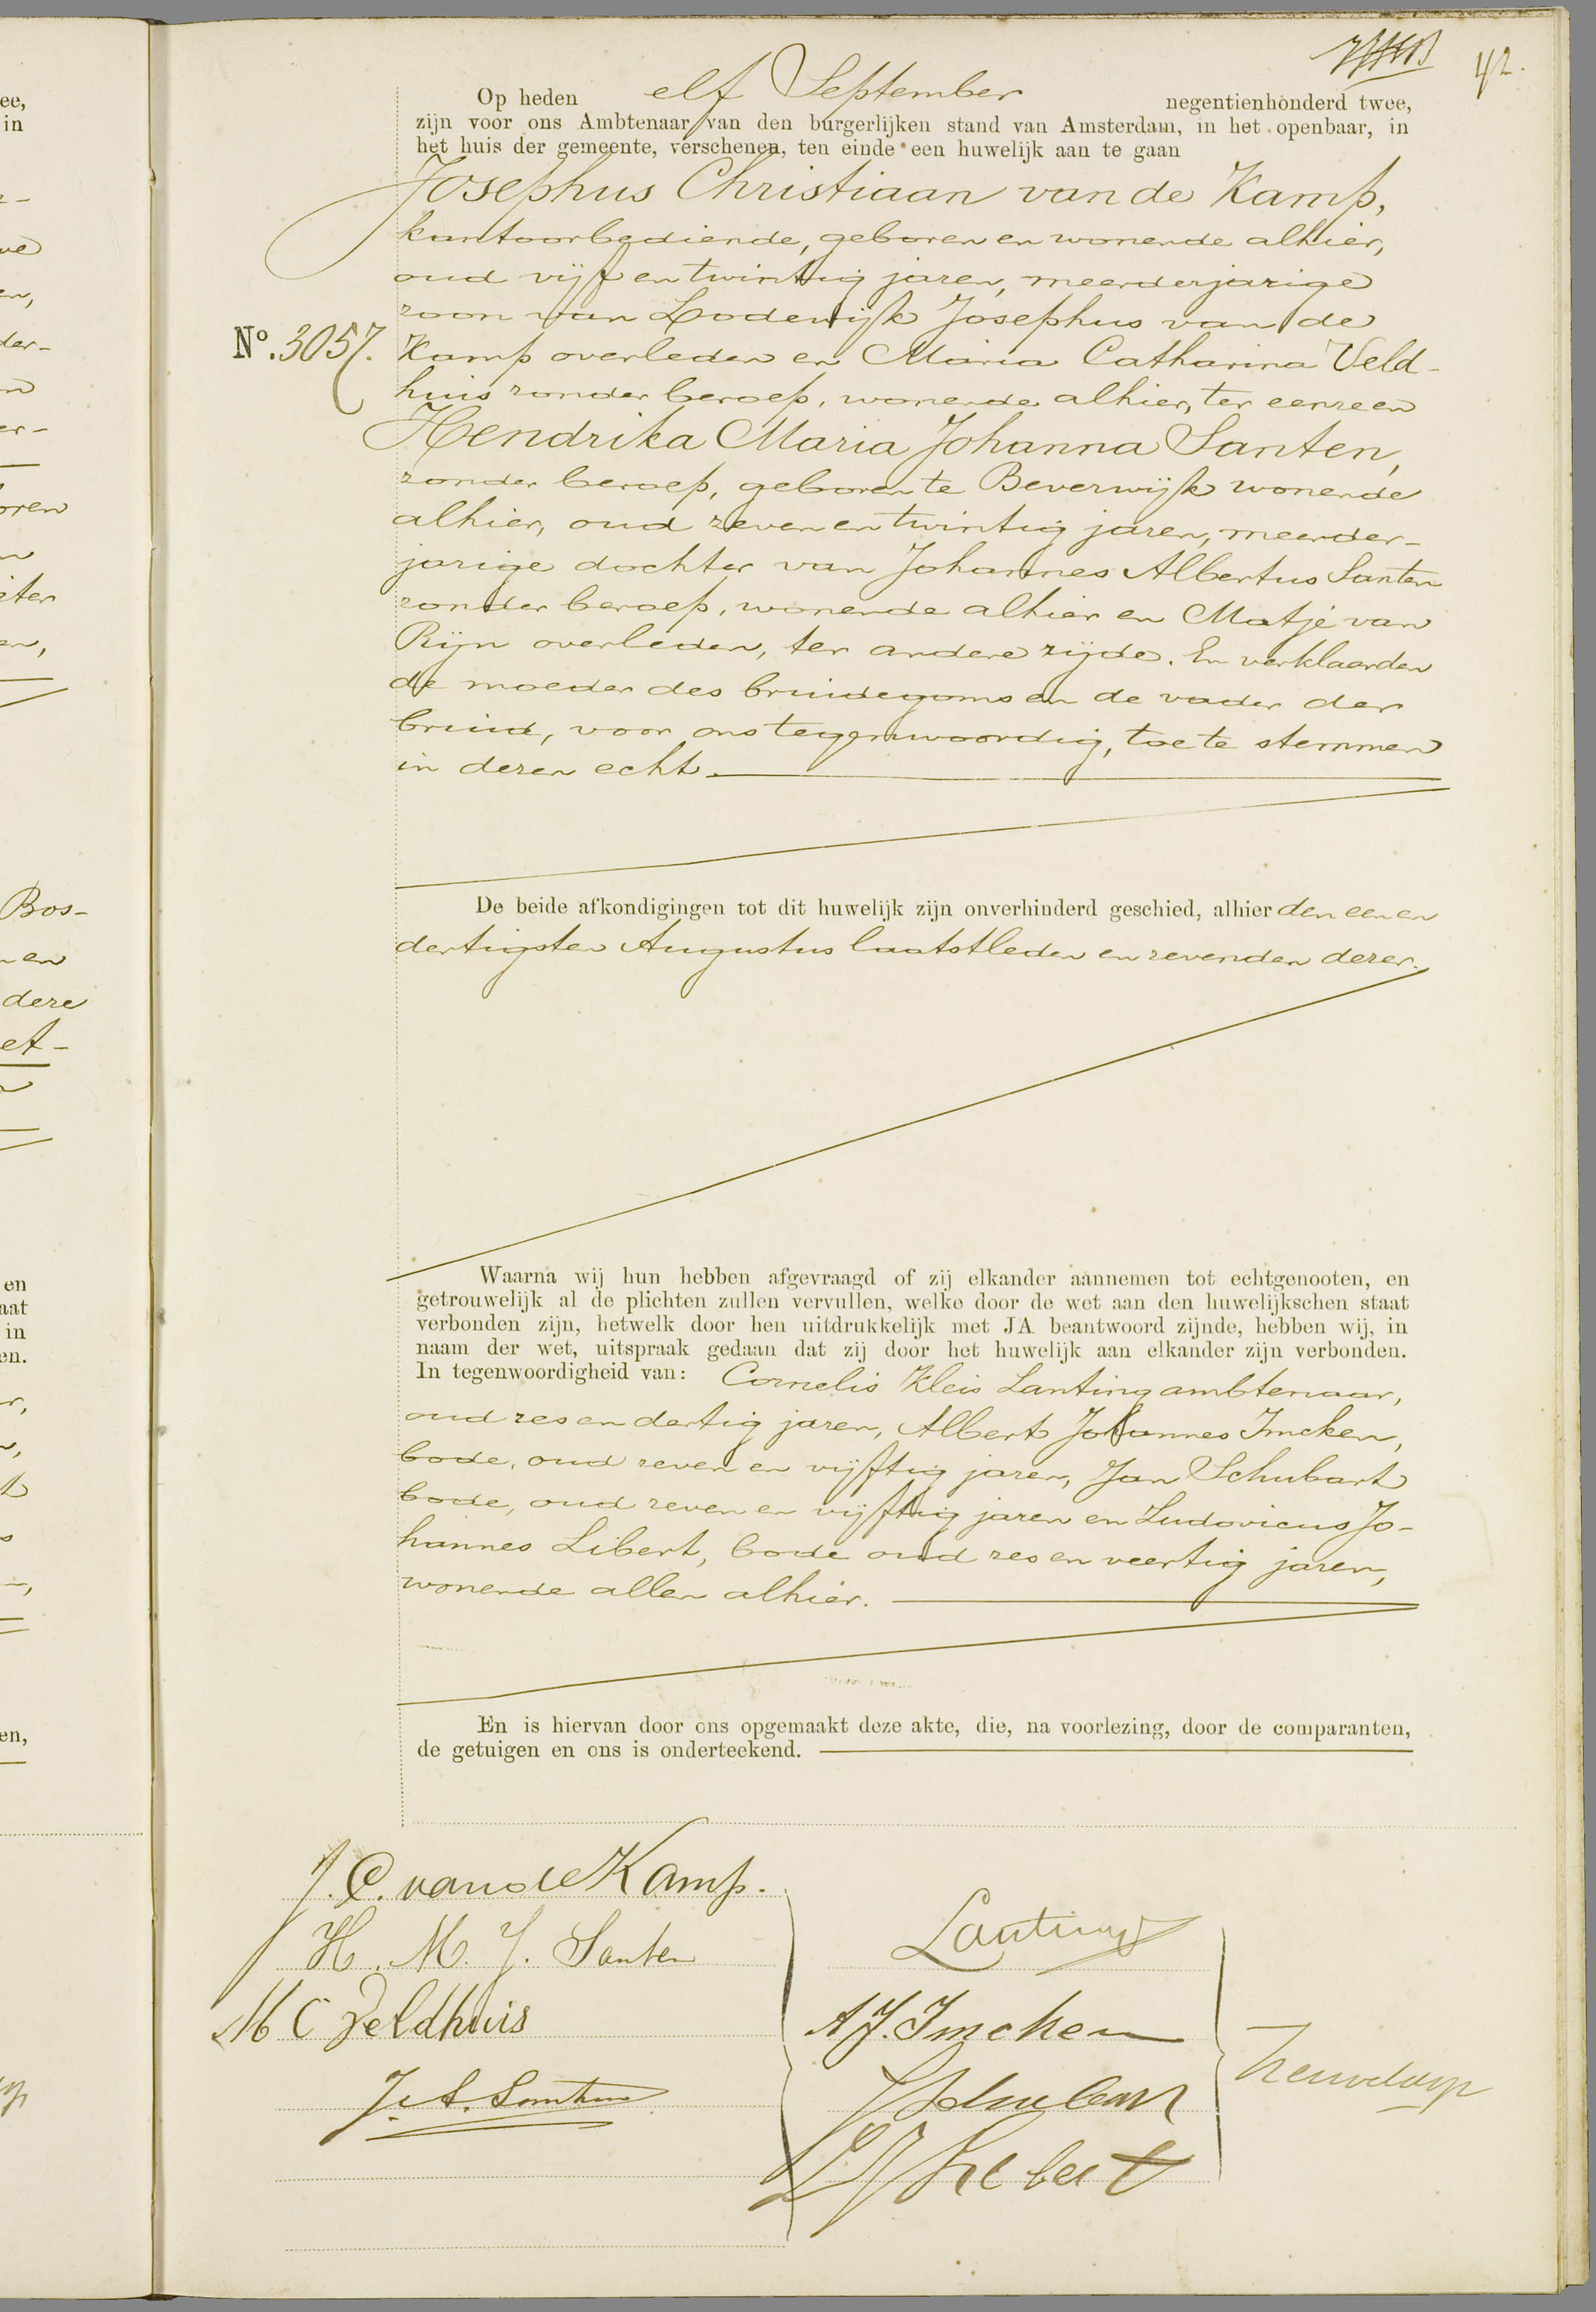 42.
Op heden elf September negentienhonderd twee,
zijn voor ons Ambtenaar van den burgerlijken stand van Amsterdam, in het openbaar, in
het huis der gemeente, verschenen, ten einde een huwelijk aan te gaan
Josephus Christiaan van de Kamp,
kantoorbediende, geboren en wonende alhier,
oud vijf en twintig jaren, meerderjarige
zoon van Lodewijk Josephus van de
No. 3057. Kamp overleden en Maria Catharina Veld-
huis zonder beroep, wonende alhier, ter eenre en
Hendrika Maria Johanna Santen,
zonder beroep, geboren te Beverwijk wonende
alhier, oud zeven en twintig jaren, meerder-
jarige dochter van Johannes Albertus Santen
zonder beroep, wonende alhier en Matje van
Rijn overleden, ter andere zijde. En verklaarden
de moeder des bruidegoms en de vader der
bruid, voor ons tegenwoordig, toe te stemmen
in dezen echt.
De beide afkondigingen tot dit huwelijk zijn onverhinderd geschied, alhier den een en
dertigsten Augustus laatstleden en zevenden dezer.
Waarna wij hun hebben afgevraagd of zij elkander aannemen tot echtgenooten, en
getrouwelijk al de plichten zullen vervullen, welke door de wet aan den huwelijkschen staat
verbonden zijn, hetwelk door hen uitdrukkelijk met JA beantwoord zijnde, hebben wij, in
naam der wet, uitspraak gedaan dat zij door het huwelijk aan elkander zijn verbonden.
In tegenwoordigheid van: Cornelis Kleis Lanting ambtenaar,
oud zes en dertig jaren, Albert Johannes Imcken,
bode, oud zeven en vijftig jaren, Jan Schubart
bode, oud zeven en vijftig jaren en Ludovicus Jo-
hannes Libert, bode oud zes en veertig jaren,
wonende allen alhier.
En is hiervan door ons opgemaakt deze akte, die, na voorlezing, door de comparanten,
de getuigen en ons is onderteekend.
J. C. van de Kamp.
H. M. J. Santen
M C Veldhuis
J. A. Santen
Lanting
A J. Imcken
J Schubart
L J Libert
ee,
in
oren
Bos-
en
dere
et-
en
aat
in
en.
en,